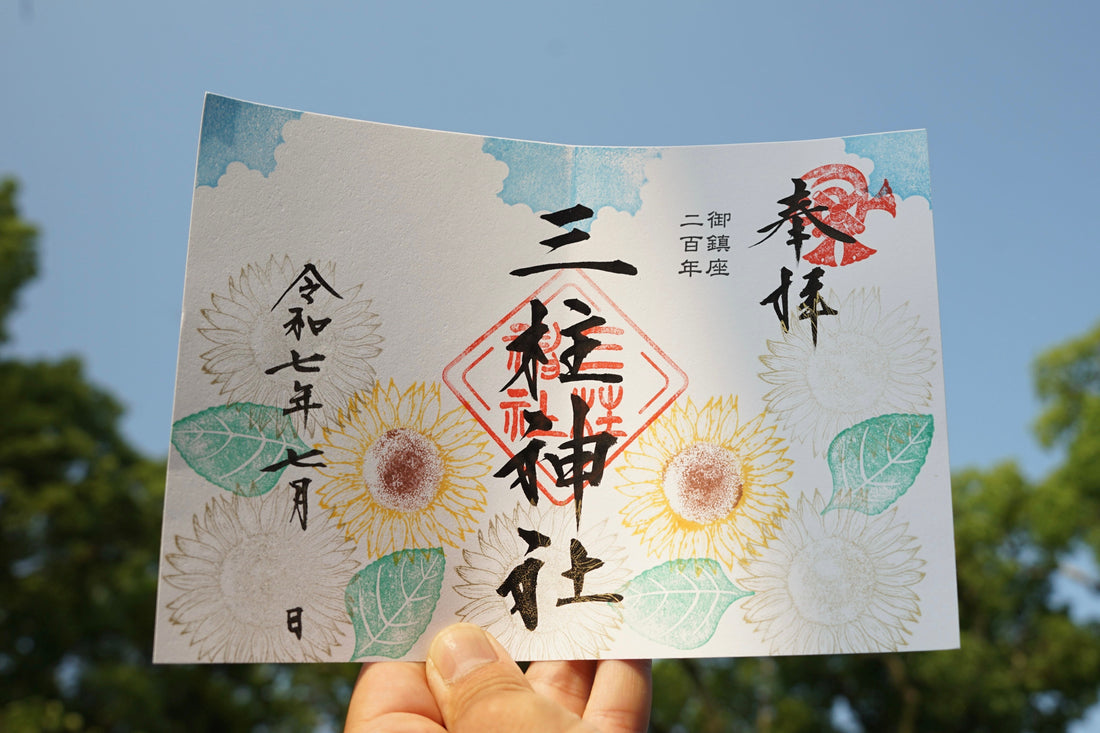 奉拝
御鎮座
二百年
三柱神社
三柱
神社
令和七年七月 日